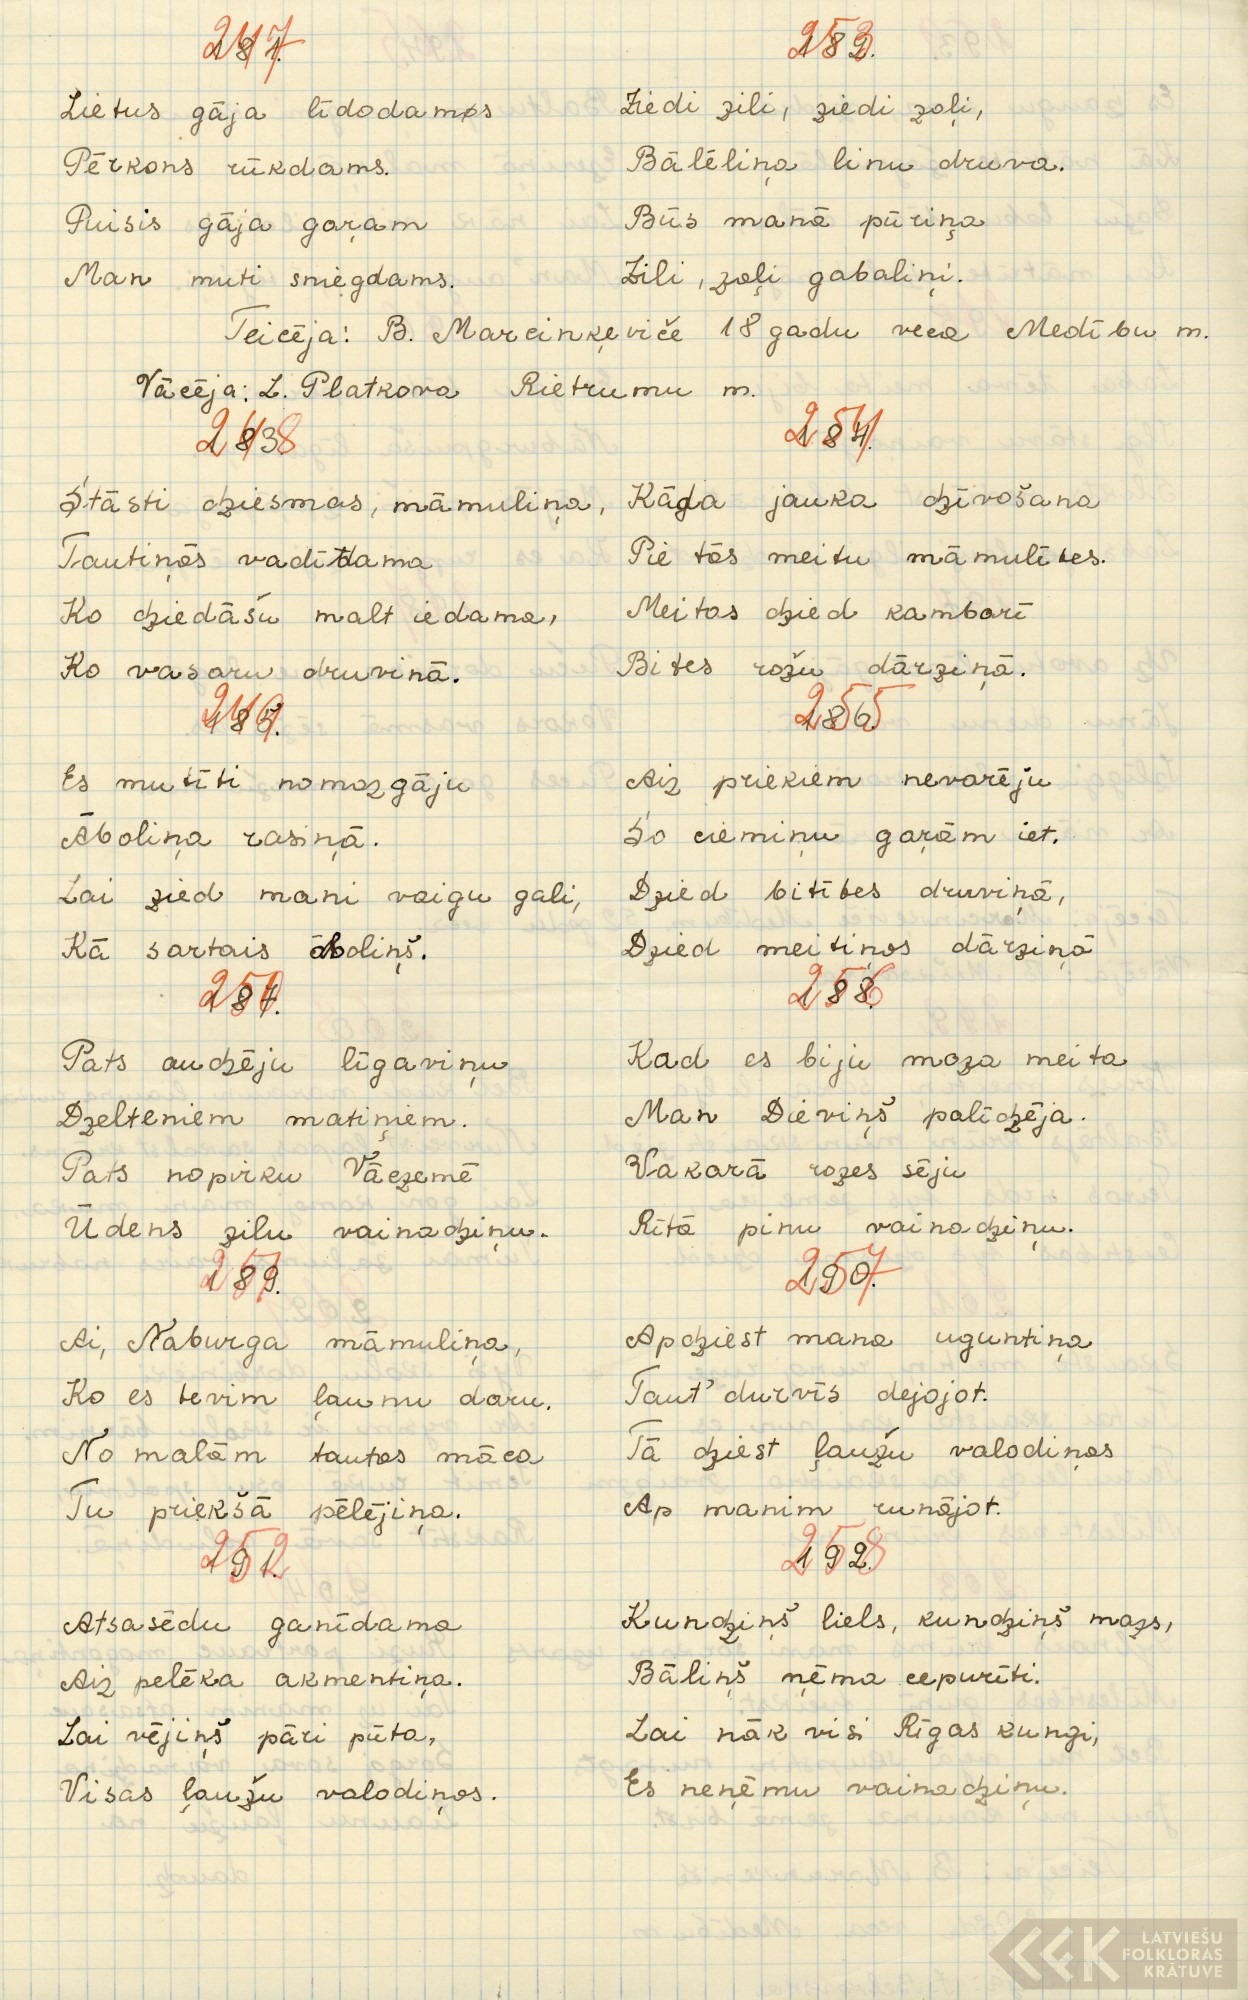 247
181.
Lietus gāja līdodams
Pērkons rūkdams.
Puisis gāja gaŗam
Man muti sniegdams.
253
182.
Ziedi zili, ziedi zaļi,
Bālēliņa linu druva.
Būs manā pūriņa
Zili, zaļi gabaliņi.
Teicēja: B. Marcinķeviče 18 gadu veca Medību m.
Vācēja: L. Platkova Rietrumu m.
248
183
Stāsti dziesmas, māmuliņa,
Tautiņās vadīdama
Ko dziedāšu malt iedama,
Ko vasaru druvinā.
254
184.
Kāda jauka dzīvošana
Pie tās meitu māmulītes.
Meitas dzied kambarī
Bites rožu dārziņā.
249
185.
Es mutīti nomazgāju
Āboliņa rasiņā.
Lai zied mani vaigu gali,
Kā sartais āboliņš.
255
186.
Aiz priekiem nevarēju
Šo ciemiņu gaŗām iet.
Dzied bitītes druviņā,
Dzied meitiņas dārziņā
250
187.
Pats audzēju līgaviņu
Dzelteniem matiņiem.
Pats nopirku Vāczemē
Ūdens zilu vainadziņu.
256
188.
Kad es biju maza meita
Man Dieviņš palīdzēja.
Vakarā rozes sēju
Rītā pinu vainadziņu.
251
189.
Ai, Naburga māmuliņa,
Ko es tevim ļaunu daru.
No malām tautas māca
Tu priekšā pēlējiņa.
257
190.
Apdziest mana uguntiņa
Taut' durvīs dejojot.
Tā dziest ļaužu valodiņas
Ap manim runājot.
252
191.
Atsasēdu ganīdama
Aiz pelēka akmentiņa.
Lai vējiņš pāri pūta,
Visas ļaužu valodiņas.
258
192.
Kundziņš liels, kundziņš mazs,
Bāliņš ņēma cepurīti.
Lai nāk visi Rīgas kungi,
Es neņēmu vainadziņu.
LATVIEŠU
FOLKLORAS
KRĀTUVE